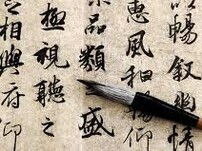 以暢叙幽情
惠風和暢仰
品類盛
極視聽之
相與俯仰